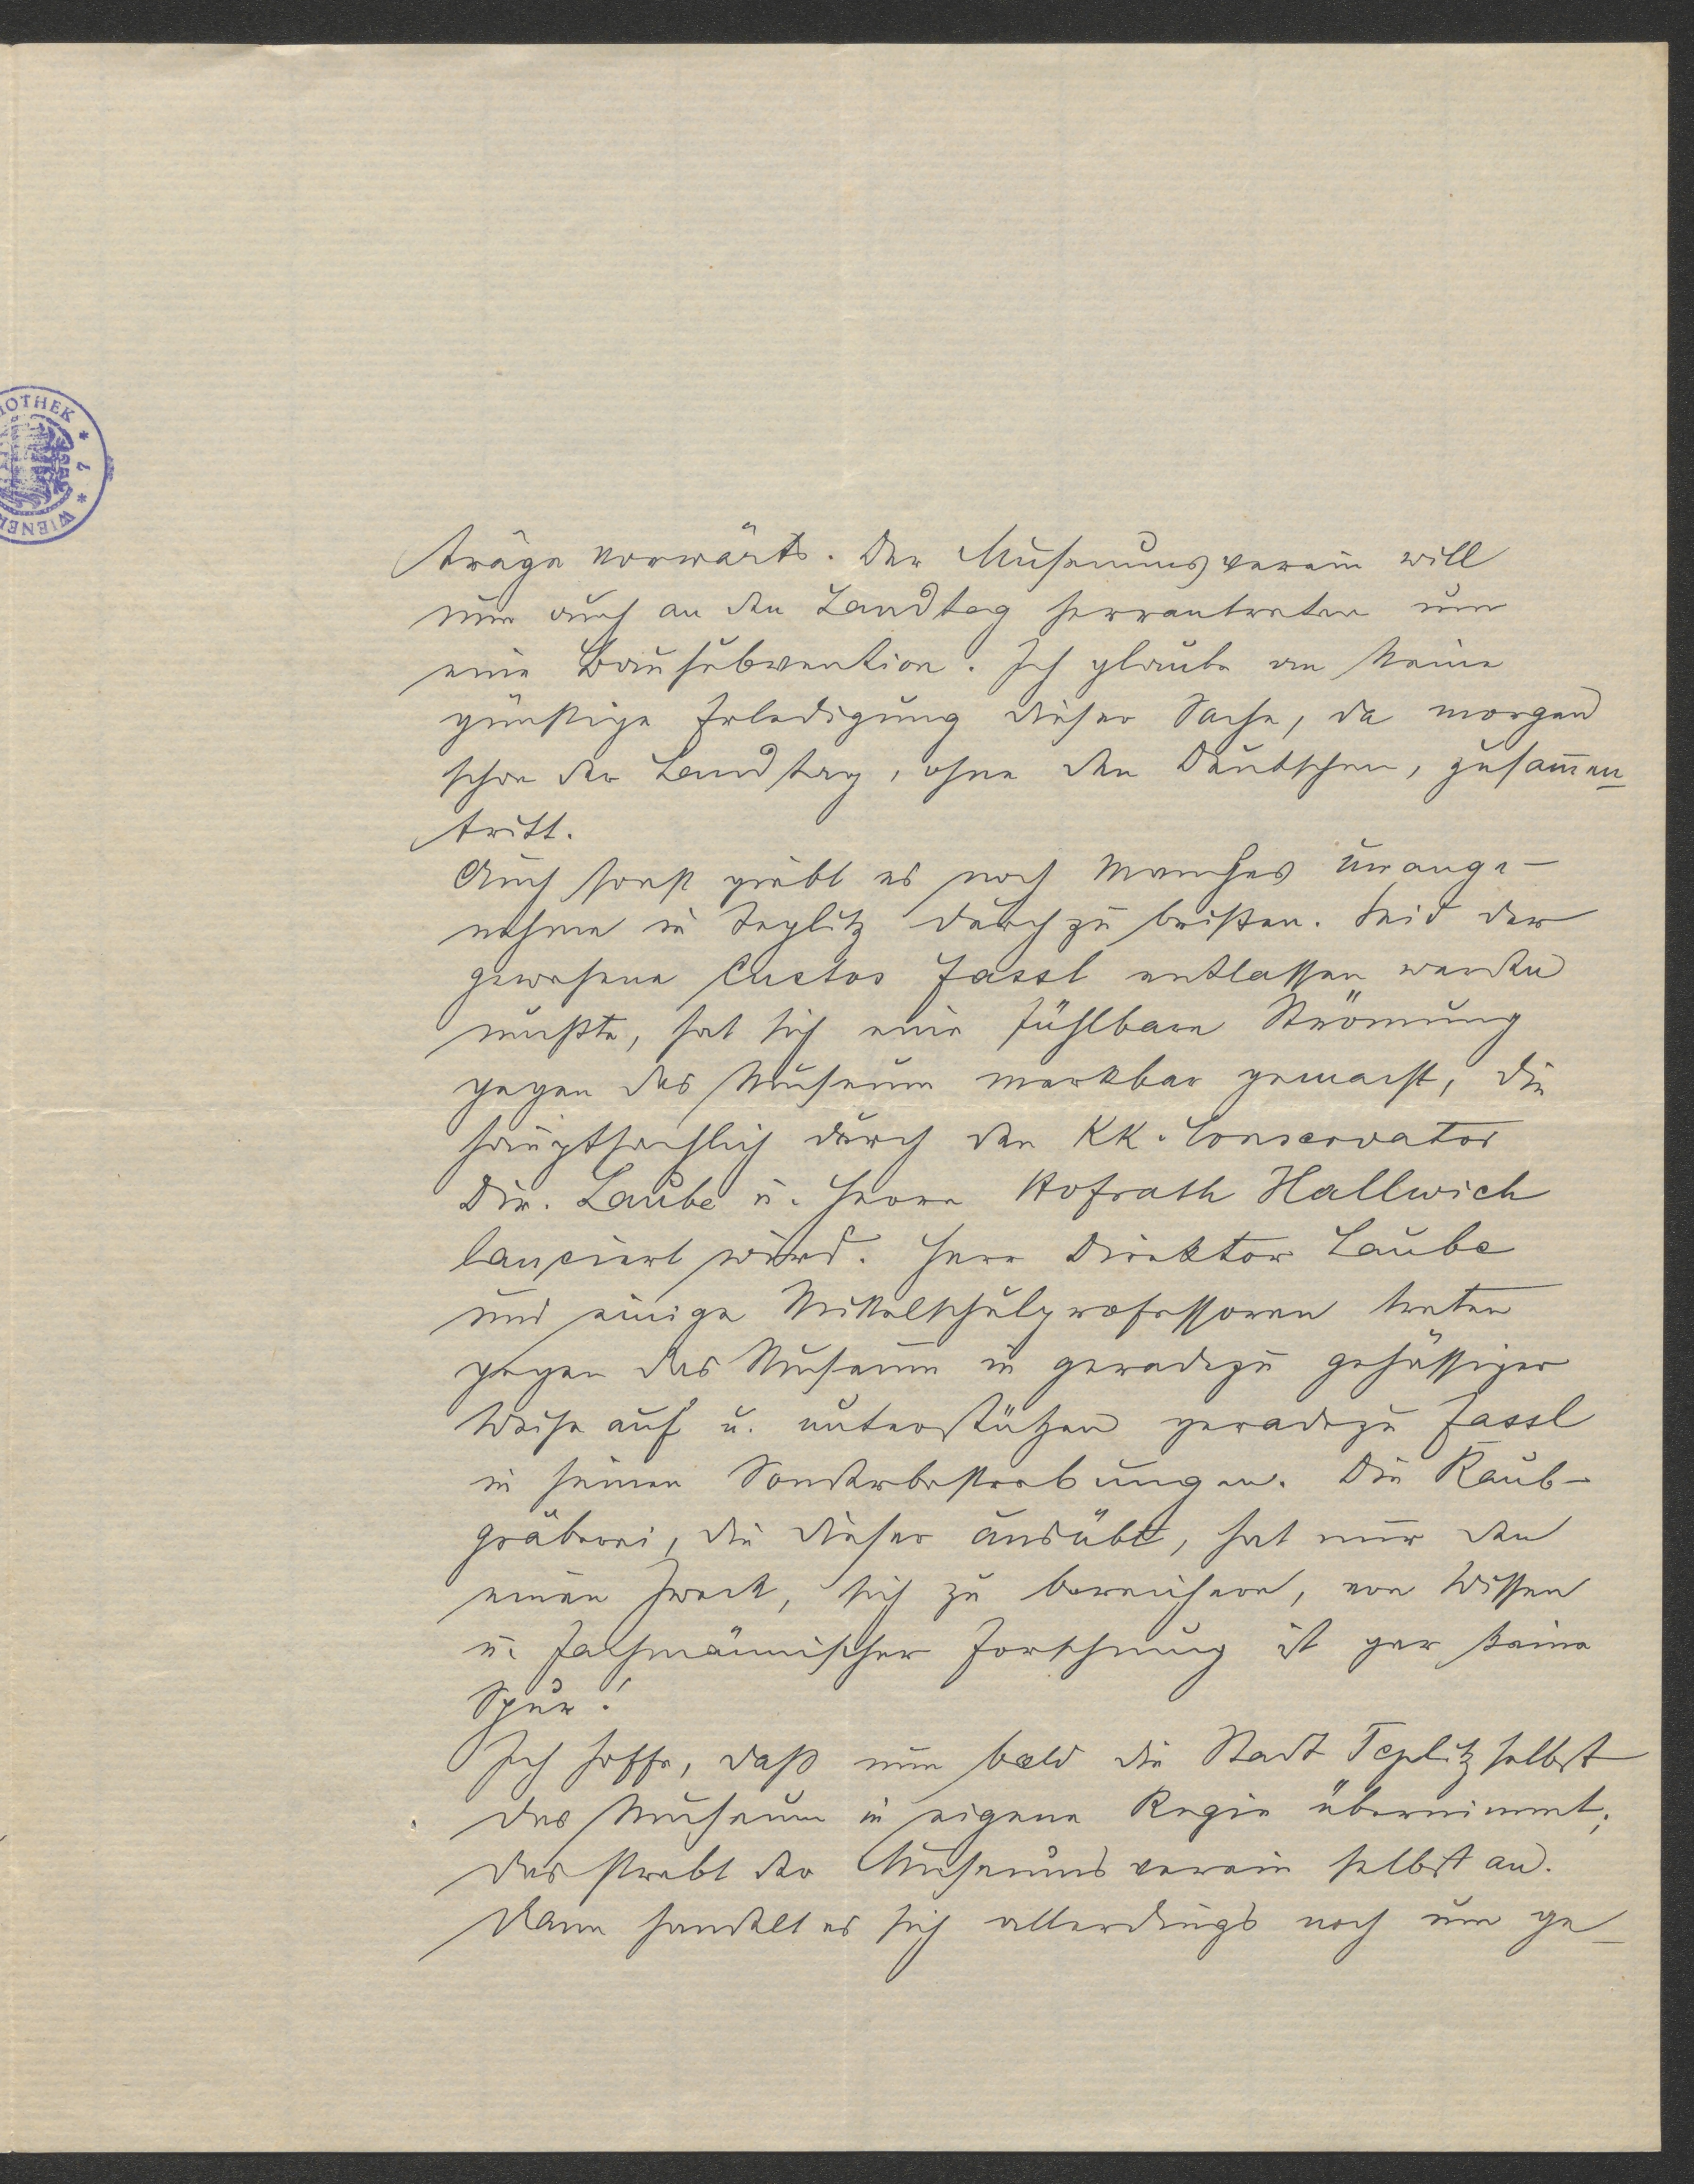 IOTHEK * 7 * WIENER
träge vorwärts. Der Museumsverein will
nun auch an den Landtag herrantreten um
eine Bausubvention. Ich glaube an keine
günstige Erledigung dieser Sache, da morgen
schon der Landtag, ohne den Deutschen, zusam̅en-
tritt.
Auch sonst giebt es noch Manches unange-
nehme in Teplitz durchzubeißen. Seid der
gewesene Custos Fassl entlassen werden
mußte, hat sich eine fühlbare Strömung
gegen das Museum merkbar gemacht, die
hauptsachlich durch den KK. Conservator
Dir. Laube u. Herrn Hofrath Hallwich
lanciert wird. Herr Direktor Laube
und einige Mittelschulprofessoren treten
gegen das Museum in geradezu gehässiger
Weise auf u. unterstützen geradezu Fassl
in seinen Sonderbestrebungen. Die Raub-
gräberei, die dieser ausübt, hat nur den
einen Zweck, sich zu bereichern, von Wissen
u. fachmännischer Forschung ist gar keine
Spur!
Ich hoffe, daß nun bald die Stadt Teplitz selbst
das Museum in eigene Regie übernimmt;
das strebt der Museumsverein selbst an.
Dann handelt es sich allerdings noch um ge-